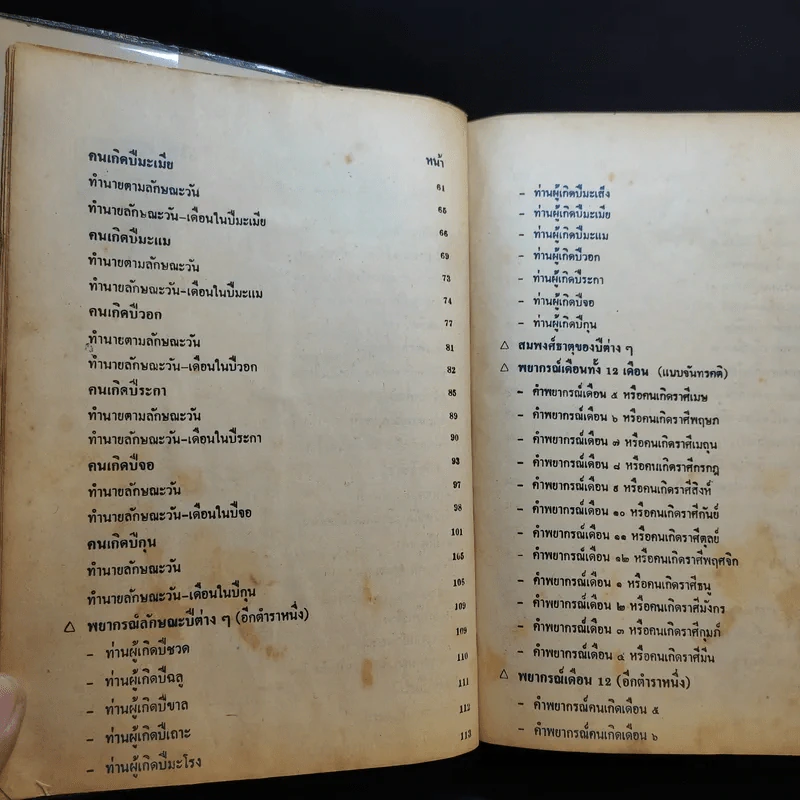 หน้า
คนเกิดปีมะเมีย 61
ทำนายตามลักษณะวัน 65
ทำนายลักษณะวัน-เดือนในปีมะเมีย 66
คนเกิดปีมะแม 69
ทำนายตามลักษณะวัน 73
ทำนายลักษณะวัน-เดือนในปีมะแม 74
คนเกิดปีวอก 77
ทำนายตามลักษณะวัน 81
ทำนายลักษณะวัน-เดือนในปีวอก 82
คนเกิดปีระกา 85
ทำนายตามลักษณะวัน 89
ทำนายลักษณะวัน-เดือนในปีระกา 90
คนเกิดปีจอ 93
ทำนายลักษณะวัน 97
ทำนายลักษณะวัน-เดือนในปีจอ 98
คนเกิดปีกุน 101
ทำนายลักษณะวัน 105
ทำนายลักษณะวัน-เดือนในปีกุน 106
△ พยากรณ์ลักษณะปีต่าง ๆ (อีกตำราหนึ่ง) 109
- ท่านผู้เกิดปีชวด 109
- ท่านผู้เกิดปีฉลู 110
- ท่านผู้เกิดปีขาล 111
- ท่านผู้เกิดปีเถาะ 112
- ท่านผู้เกิดปีมะโรง 113
- ท่านผู้เกิดปีมะเส็ง
- ท่านผู้เกิดปีมะเมีย
- ท่านผู้เกิดปีมะแม
- ท่านผู้เกิดปีวอก
- ท่านผู้เกิดปีระกา
- ท่านผู้เกิดปีจอ
- ท่านผู้เกิดปีกุน
△ สมพงศ์ธาตุของปีต่าง ๆ
△ พยากรณ์เดือนทั้ง 12 เดือน (แบบจันทรคติ)
- คำพยากรณ์เดือน ๕ หรือคนเกิดราศีเมษ
- คำพยากรณ์เดือน ๖ หรือคนเกิดราศีพฤษภ
- คำพยากรณ์เดือน ๗ หรือคนเกิดราศีเมถุน
- คำพยากรณ์เดือน ๘ หรือคนเกิดราศีกรกฎ
- คำพยากรณ์เดือน ๙ หรือคนเกิดราศีสิงห์
- คำพยากรณ์เดือน ๑๐ หรือคนเกิดราศีกันย์
- คำพยากรณ์เดือน ๑๑ หรือคนเกิดราศีตุลย์
- คำพยากรณ์เดือน ๑๒ หรือคนเกิดราศีพฤศจิก
- คำพยากรณ์เดือน ๑ หรือคนเกิดราศีธนู
- คำพยากรณ์เดือน ๒ หรือคนเกิดราศีมังกร
- คำพยากรณ์เดือน ๓ หรือคนเกิดราศีกุมภ์
- คำพยากรณ์เดือน ๔ หรือคนเกิดราศีมีน
△ พยากรณ์เดือน 12 (อีกตำราหนึ่ง)
- คำพยากรณ์คนเกิดเดือน ๕
- คำพยากรณ์คนเกิดเดือน ๖